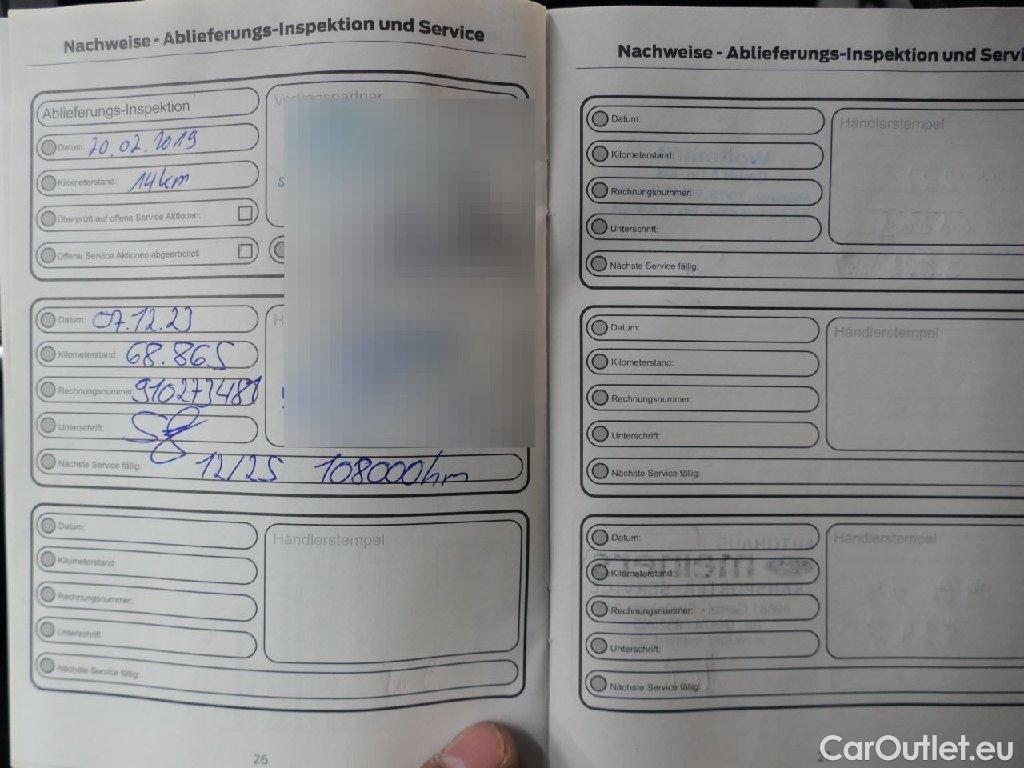 Nachweise - Ablieferungs-Inspektion und Service
Ablieferungs-Inspektion
Vertragspartner
Datum: 20.02.2019
Kilometerstand: 14km
Überprüft auf offene Service Aktionen:
Offene Service Aktionen abgearbeitet:
Datum: 07.12.23
Kilometerstand: 68.865
Rechnungsnummer:
Unterschrift:
Nächste Service fällig: 12/25 108000km
Datum:
Händlerstempel
Kilometerstand:
Rechnungsnummer:
Unterschrift:
Nächste Service fällig:
26
Nachweise - Ablieferungs-Inspektion und Servi
Datum:
Händlerstempel
Kilometerstand:
Rechnungsnummer:
Unterschrift:
Nächste Service fällig:
Datum:
Händlerstempel
Kilometerstand:
Rechnungsnummer:
Unterschrift:
Nächste Service fällig:
Datum:
Händlerstempel
Kilometerstand:
Rechnungsnummer:
Unterschrift:
Nächste Service fällig:
CarOutlet.eu